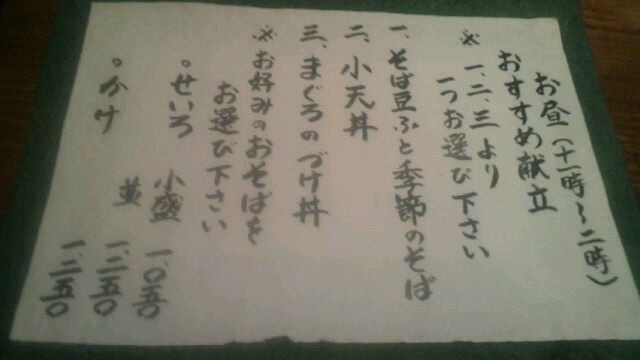 お昼(十一時～二時)
おすすめ献立
※一、二、三より
一つお選び下さい
一、そば豆ふと季節のそば
二、小天丼
三、まぐろのづけ丼
※お好みのおそばを
お選び下さい
。せいろ 小盛 一、〇五〇
並 一、二五〇
。かけ 一、二五〇